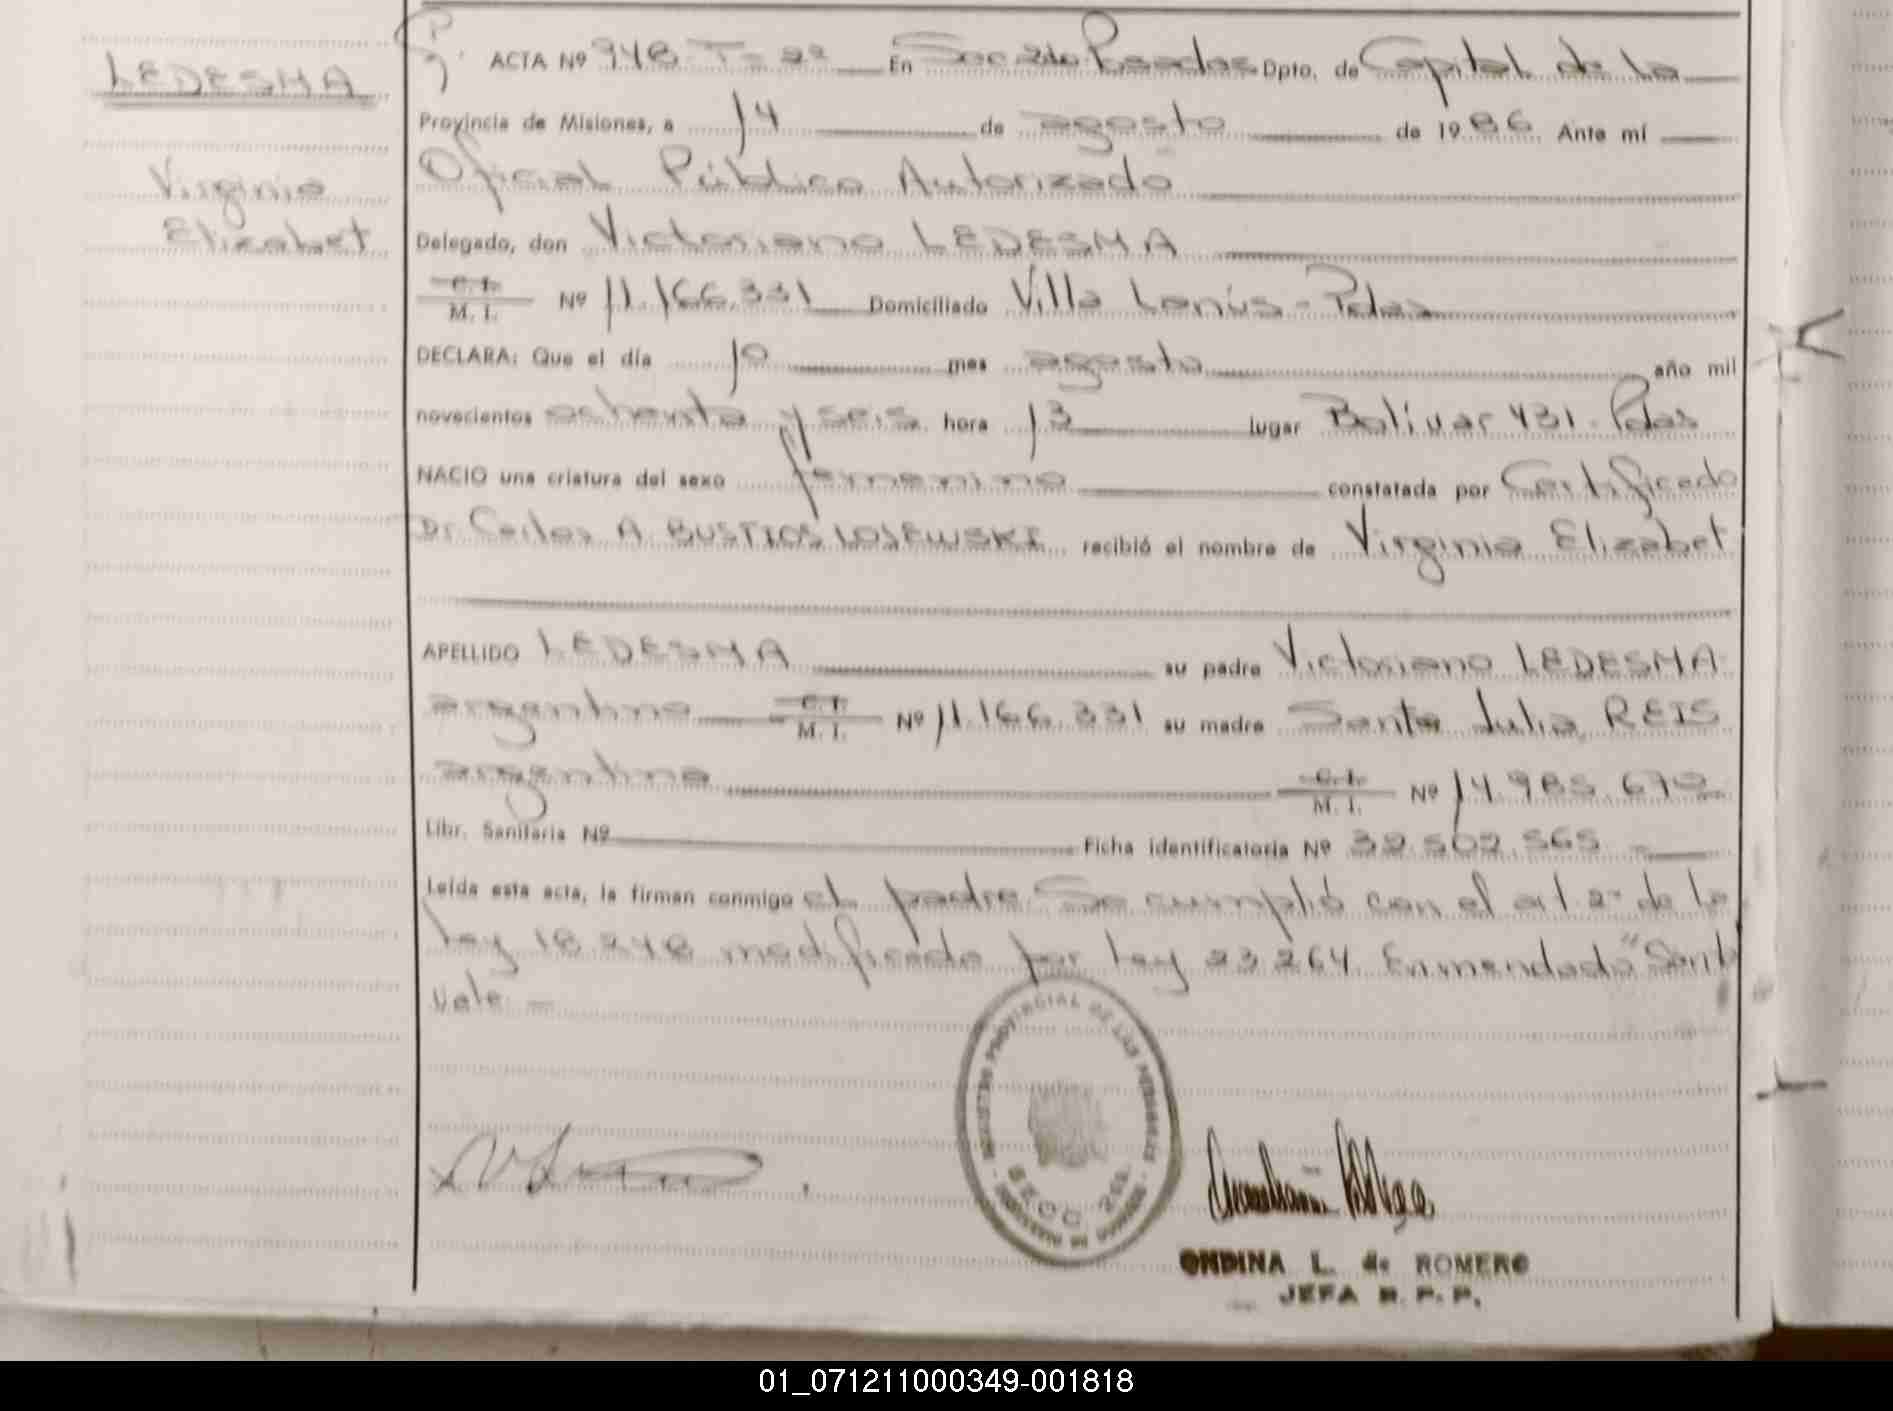 LEDESMA
Virginia
Elizabet
ACTA Nº 948 T= 2º En Secc 2da Posadas Dpto. de Capital de la
Provincia de Misiones, a 14 de agosto de 1986 Ante mí
Oficial Público Autorizado
Delegado, don Victoriano LEDESMA
C. I.
M. I. Nº 11.166.331 Domiciliado Villa Lanús - Pdas
DECLARA: Que el día 10 mes agosto año mil
novecientos ochenta y seis hora 13 lugar Bolívar 431 - Pdas
NACIO una criatura del sexo femenino constatada por Certificado
Dr Carlos A BUSTIOS LOSEWSKI recibió el nombre de Virginia Elizabet
APELLIDO LEDESMA su padre Victoriano LEDESMA
argentino C. I. M. I. Nº 11.166.331 su madre Santa Julia REIS
argentina C. I. M. I. Nº 14.985.670
Libr. Sanitaria Nº Ficha identificatoria Nº 32.502.565
Leída esta acta, la firman conmigo el padre Se cumplió con el art 2º de la
Ley 18248 modificada por Ley 23264. Enmendado "Santa
Vale =
REGISTRO PROVINCIAL DE LAS PERSONAS
SECC 2da
ONDINA L. de ROMERO
JEFA R. P. P.
01_071211000349-001818